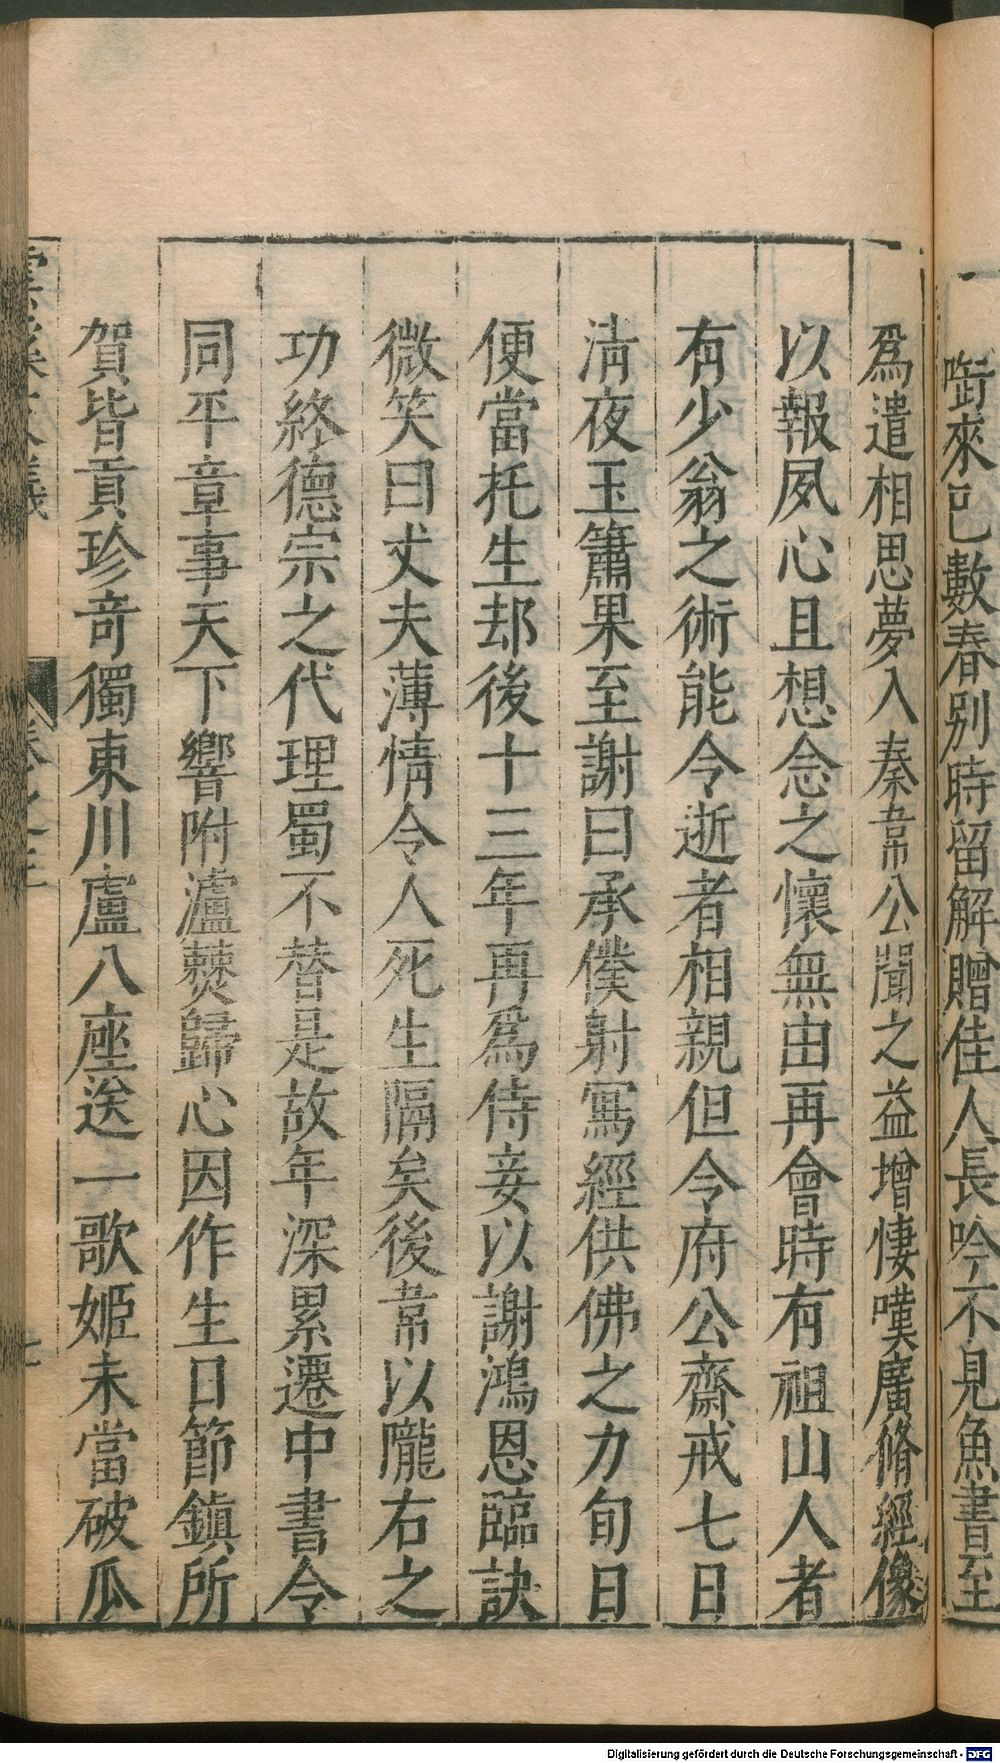 啣來已數春别時留解贈佳人長吟不見魚書至
爲遣相思夢入秦韋公聞之益增悽嘆廣脩經像
以報夙心且想念之懷無由再會時有祖山人者
有少翁之術能令逝者相親但令府公齋戒七日
淸夜玉簫果至謝曰承僕射寫經供佛之力旬日
便當托生却後十三年再爲侍妾以謝鴻恩臨訣
微笑曰丈夫薄情令人死生隔矣後韋以隴右之
功終德宗之代理蜀不替是故年深累遷中書令
同平章事天下響附瀘僰歸心因作生日節鎮所
賀皆貢珍奇獨東川盧八座送一歌姬未當破瓜
雲溪友議
卷之三
Digitalisierung gefördert durch die Deutsche Forschungsgemeinschaft - DFG